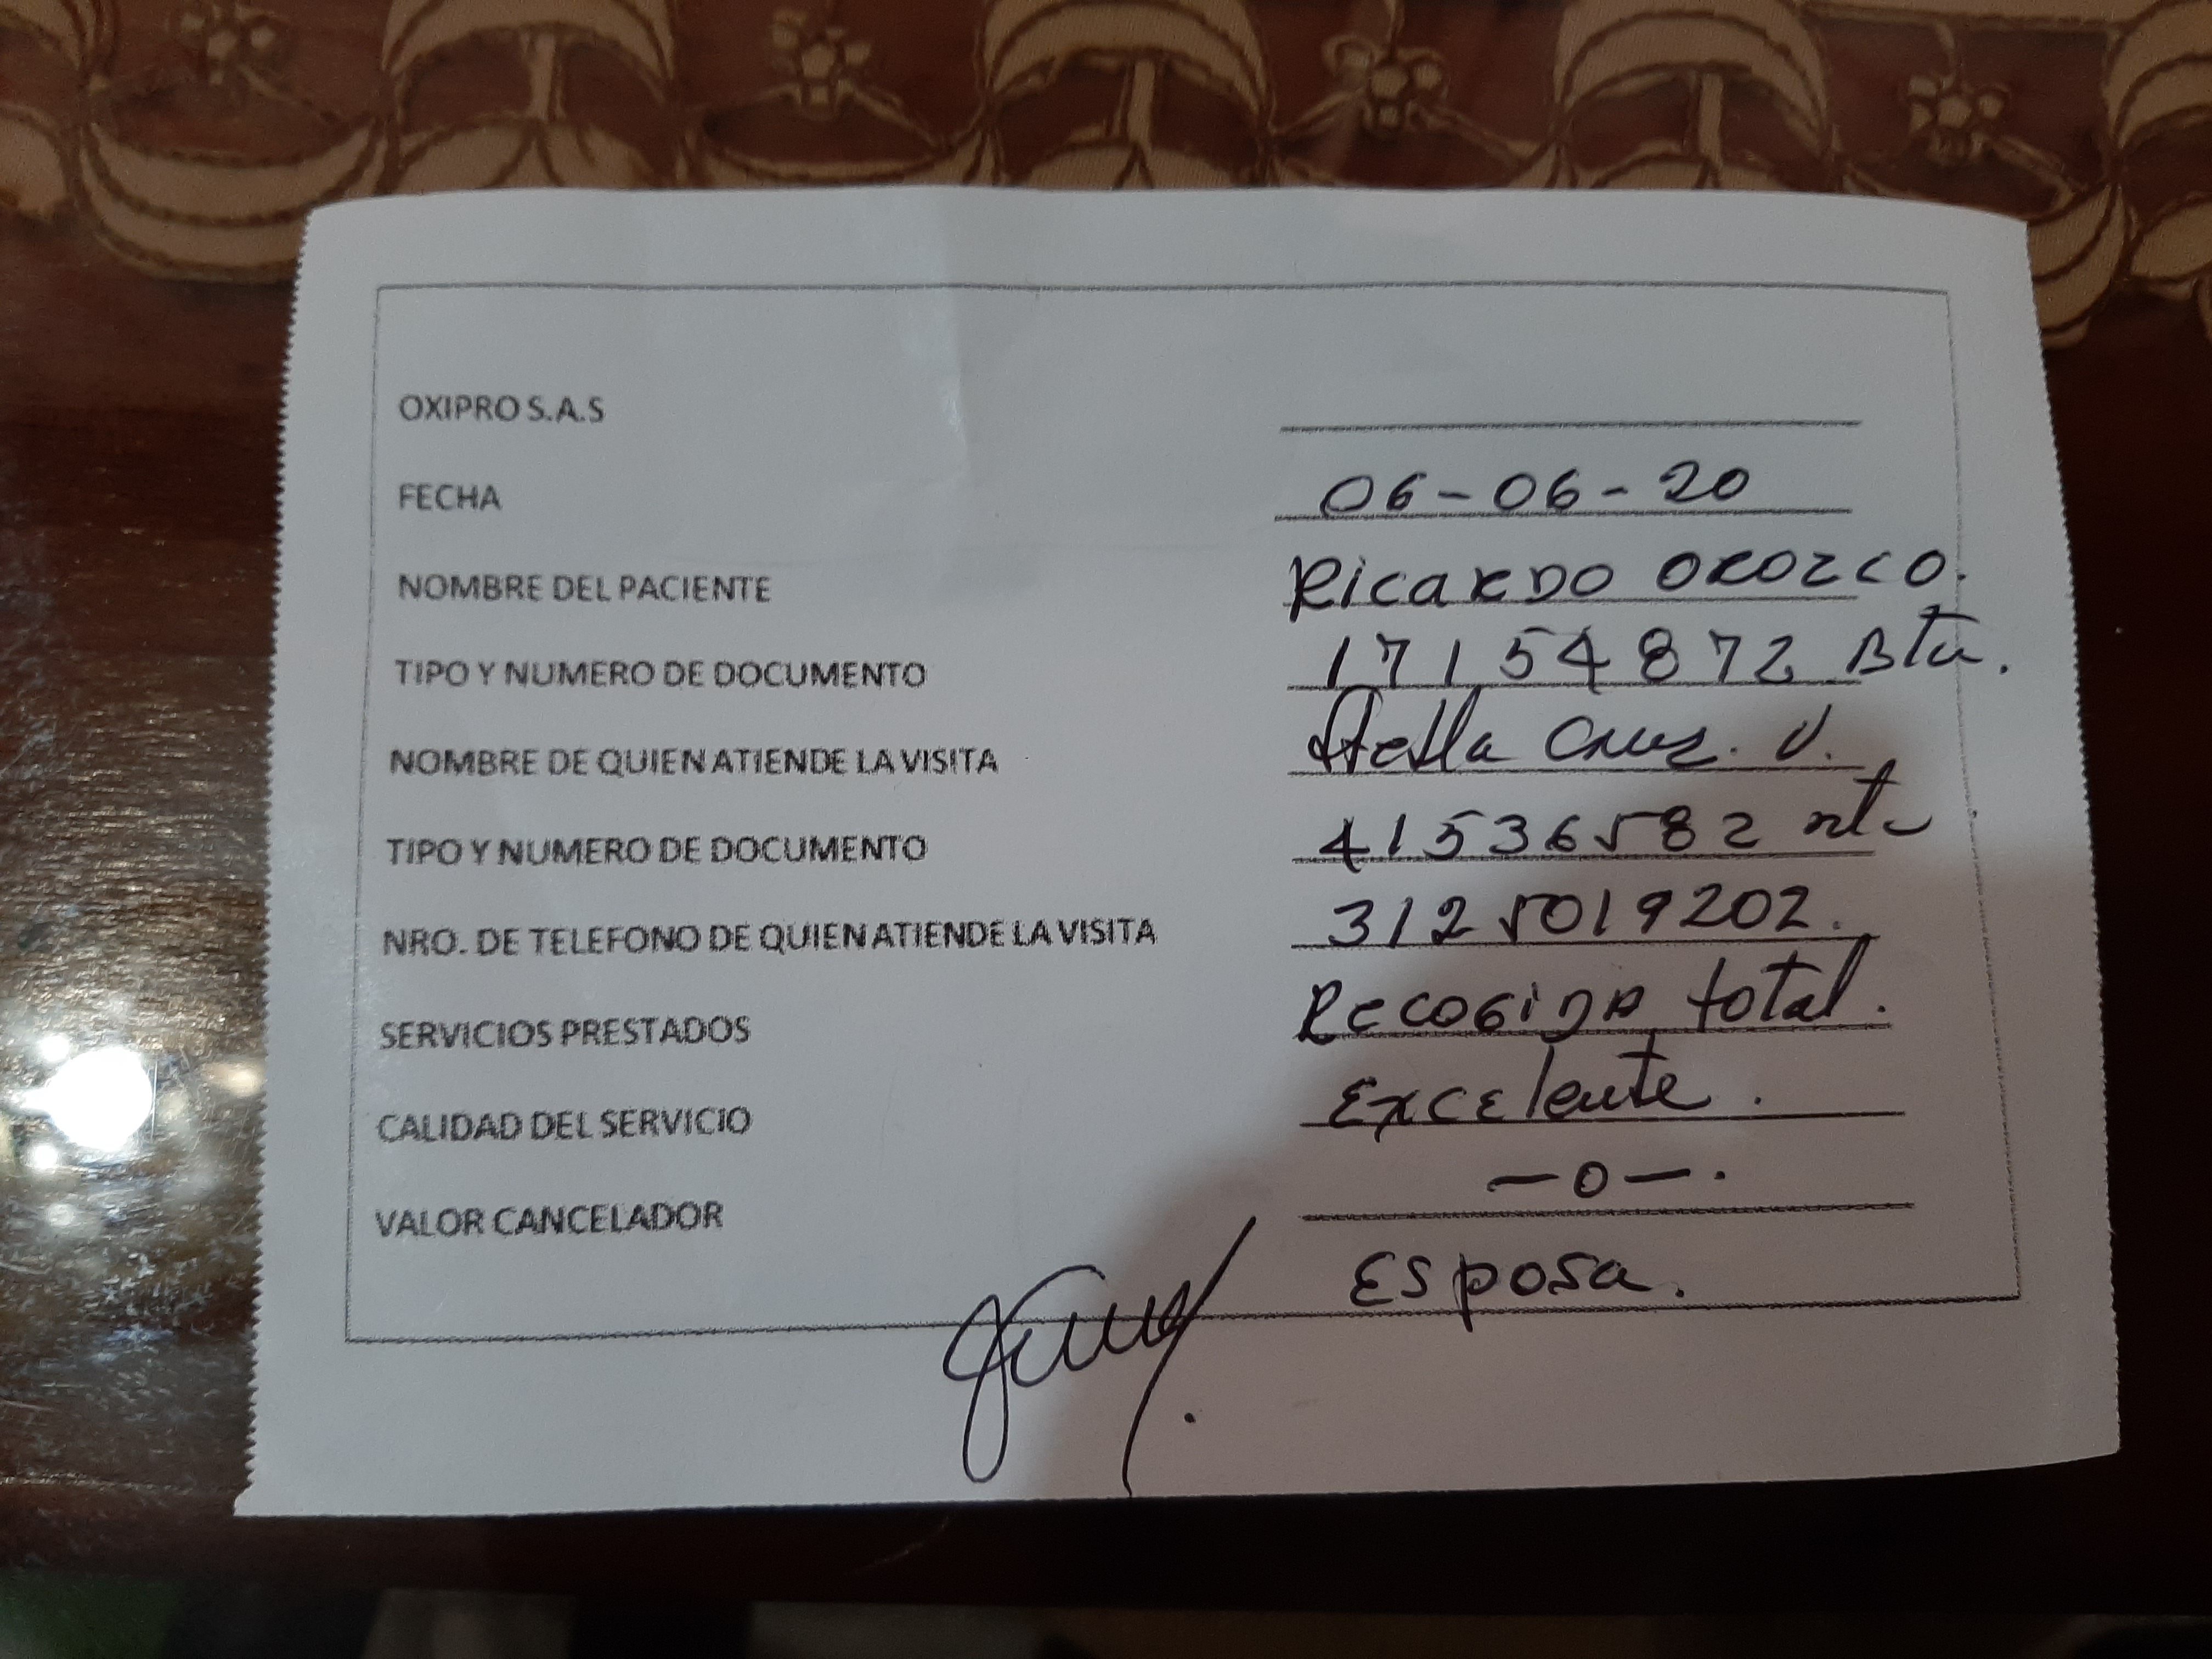 OXIPRO S.A.S
FECHA 06-06-20
NOMBRE DEL PACIENTE Ricardo Orozco.
TIPO Y NUMERO DE DOCUMENTO 17154872 Bta.
NOMBRE DE QUIEN ATIENDE LA VISITA Stella Cruz. V.
TIPO Y NUMERO DE DOCUMENTO 41536582
NRO. DE TELEFONO DE QUIEN ATIENDE LA VISITA 3125019202.
SERVICIOS PRESTADOS Recogida total.
CALIDAD DEL SERVICIO Excelente.
VALOR CANCELADOR —0—.
Esposa.